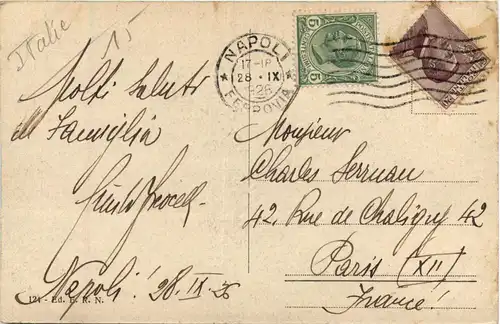 Italie
15
NAPOLI
17-18
28 · IX
1926
FERROVIA
5 5
Molti saluti
Famiglia
Napoli! 28-IX-26
121 - Ed. E. R. N.
Monsieur
Charles
42, Rue de Chaligny 42
Paris (XII)
France!